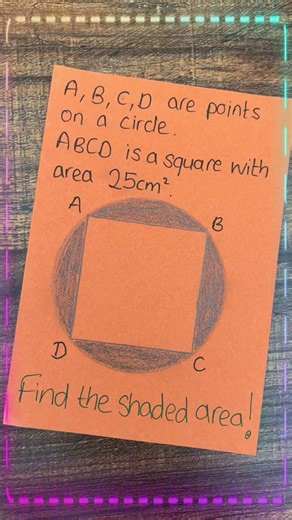 A, B, C, D are points
on a circle.
ABCD is a square with
area 25cm².
A
B
D
C
Find the shaded area!